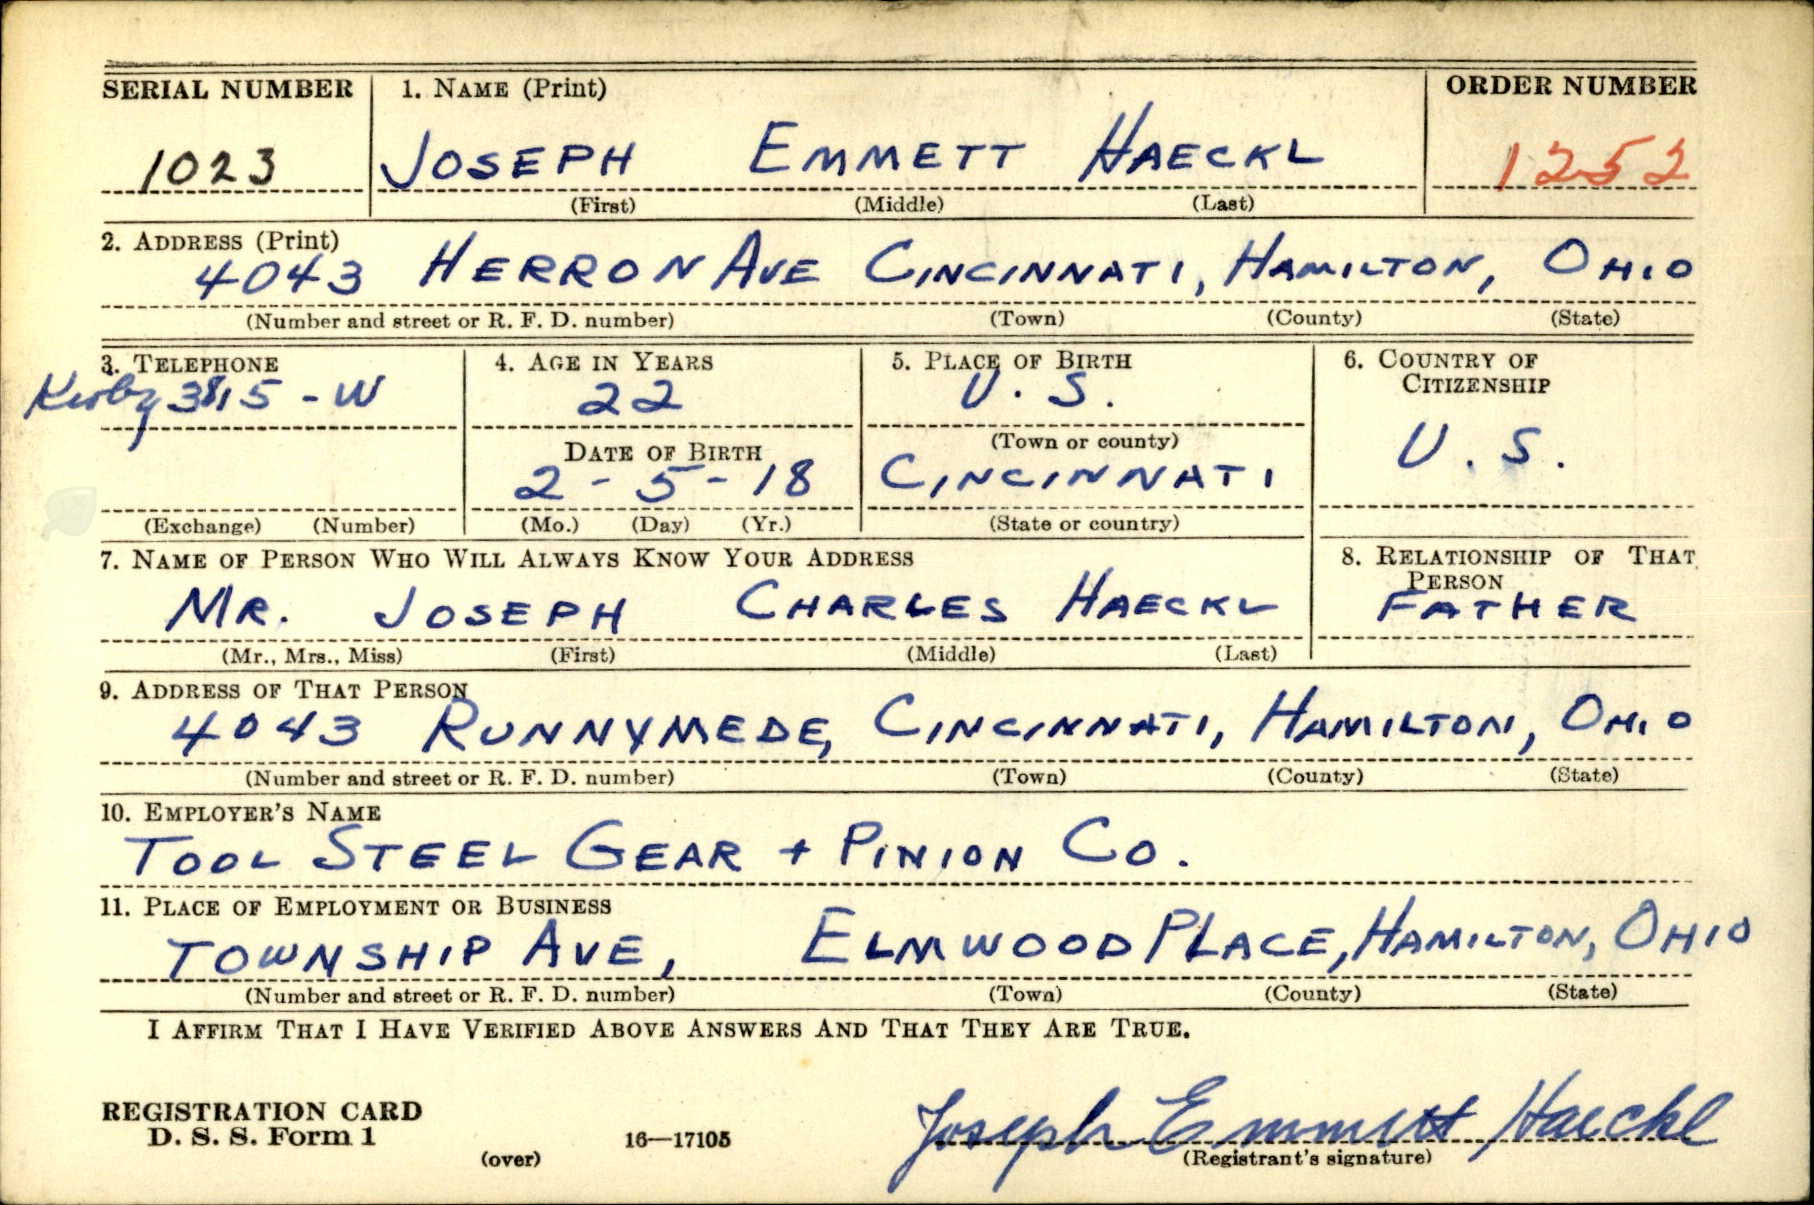 SERIAL NUMBER 1. NAME (Print) ORDER NUMBER
1023 JOSEPH EMMETT HAECKL 1252
(First) (Middle) (Last)
2. ADDRESS (Print)
4043 HERRON AVE CINCINNATI, HAMILTON, OHIO
(Number and street or R. F. D. number) (Town) (County) (State)
3. TELEPHONE 4. AGE IN YEARS 5. PLACE OF BIRTH 6. COUNTRY OF CITIZENSHIP
Kirby 3815-W 22 U.S. U.S.
(Town or county)
DATE OF BIRTH
2-5-18 CINCINNATI
(Exchange) (Number) (Mo.) (Day) (Yr.) (State or country)
7. NAME OF PERSON WHO WILL ALWAYS KNOW YOUR ADDRESS 8. RELATIONSHIP OF THAT PERSON
MR. JOSEPH CHARLES HAECKL FATHER
(Mr., Mrs., Miss) (First) (Middle) (Last)
9. ADDRESS OF THAT PERSON
4043 RUNNYMEDE, CINCINNATI, HAMILTON, OHIO
(Number and street or R. F. D. number) (Town) (County) (State)
10. EMPLOYER'S NAME
TOOL STEEL GEAR + PINION CO.
11. PLACE OF EMPLOYMENT OR BUSINESS
TOWNSHIP AVE, ELMWOOD PLACE, HAMILTON, OHIO
(Number and street or R. F. D. number) (Town) (County) (State)
I AFFIRM THAT I HAVE VERIFIED ABOVE ANSWERS AND THAT THEY ARE TRUE.
REGISTRATION CARD
D. S. S. Form 1 16—17105 Joseph Emmett Haeckl
(over) (Registrant's signature)